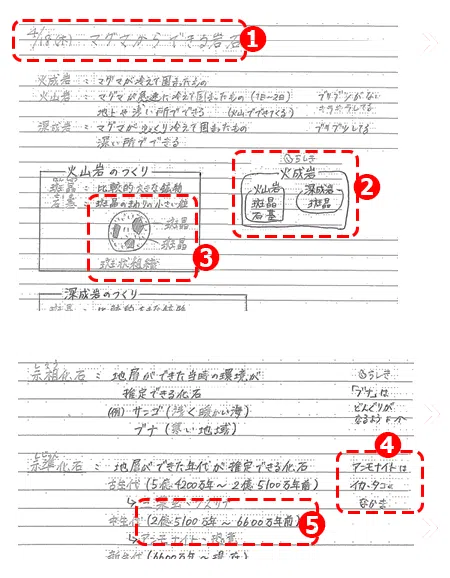 4/18(水) マグマからできる岩石
1
火成岩：マグマが冷えて固まったもの
火山岩：マグマが急速に冷えて固まったもの(1日~2日)
地上や浅い所でできる (火山でできてくる)
ブツブツがない
キラキラしてる
深成岩：マグマがゆっくり冷えて固まったもの
深い所でできる
ブツブツしてる
火山岩のつくり
斑晶：比較的大きな鉱物
石基：斑晶の周りの小さい粒
斑晶
斑晶
斑状組織
3
まめちしき
火成岩
火山岩
斑晶
石基
深成岩
斑晶
2
深成岩のつくり
示相化石：地層ができた当時の環境が
推定できる化石
(例) サンゴ(浅く暖かい海)
ブナ(寒い地域)
「ブナ」は
どんぐりが
なるよ
示準化石：地層ができた年代が推定できる化石
古生代(5億4200万年~2億5100万年前)
中生代(2億5100万年~6600万年前)
アンモナイト・恐竜
新生代(6600万年~現在)
5
4
アンモナイトは
イカ・タコの
なかま